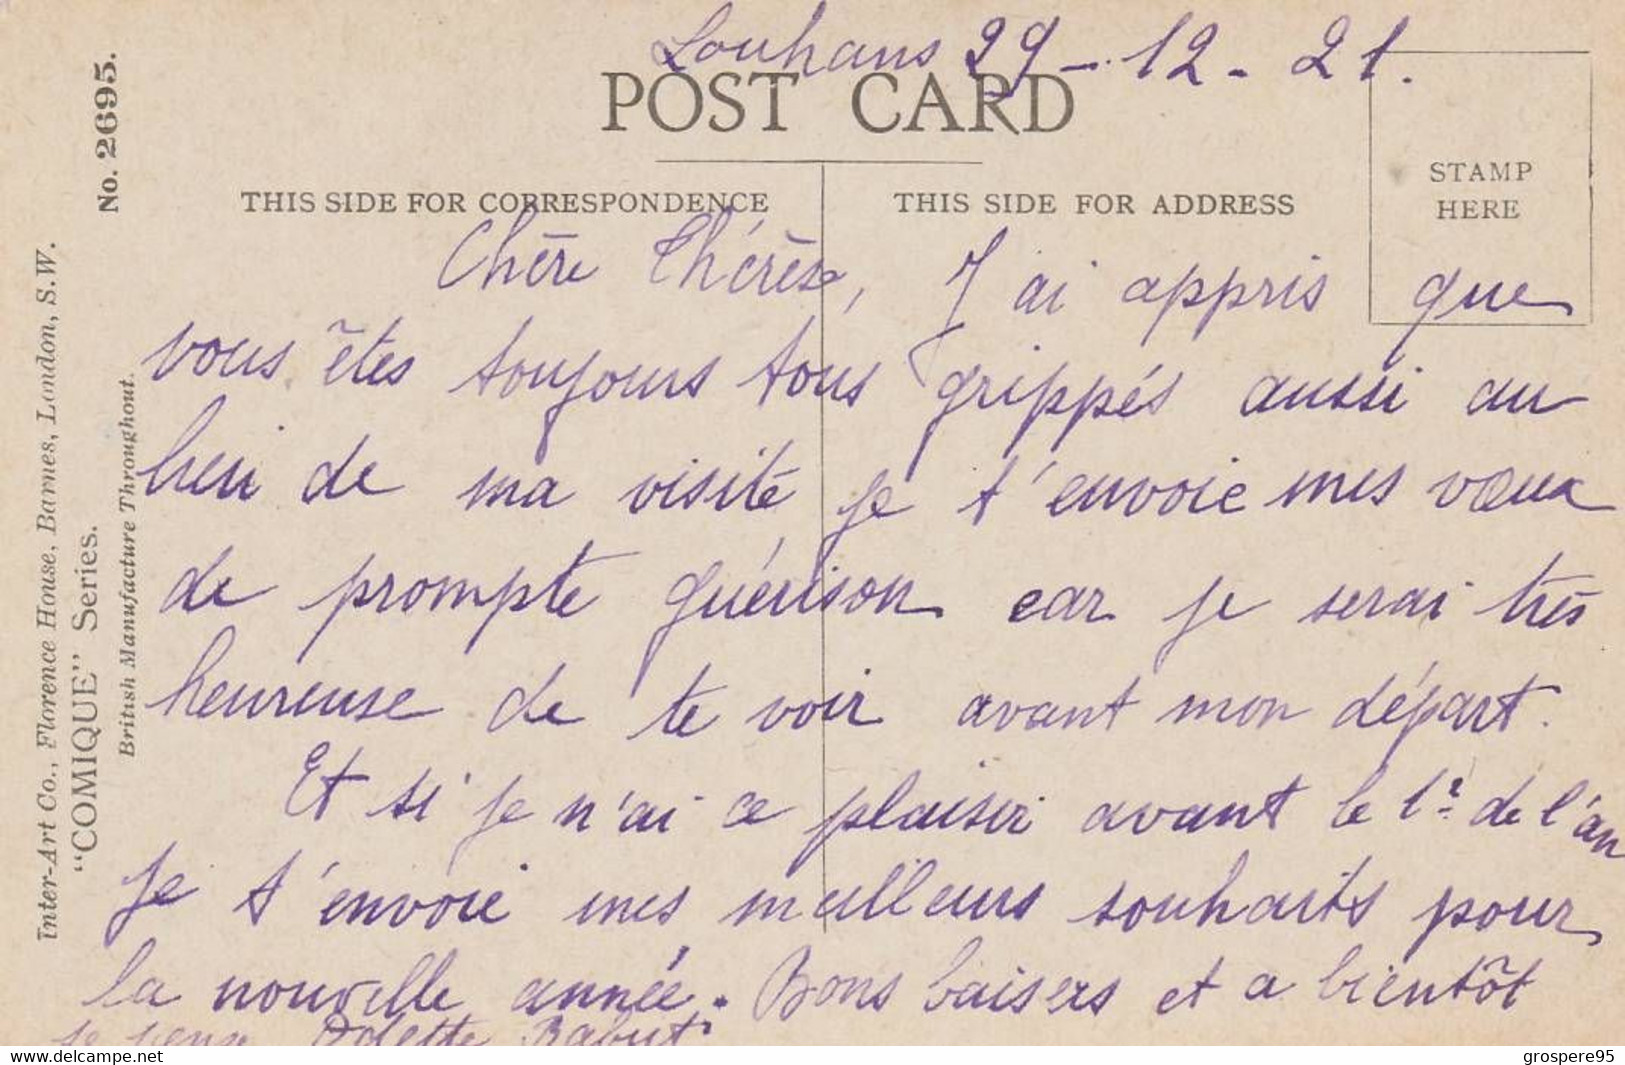 Louhans 29-12-21.
POST CARD
THIS SIDE FOR CORRESPONDENCE
THIS SIDE FOR ADDRESS
STAMP
HERE
No. 2695.
Inter-Art Co., Florence House, Barnes, London, S.W.
"COMIQUE" Series.
British Manufacture Throughout.
Chère Thérèse, J'ai appris que
vous êtes toujours tous grippés aussi au
lieu de ma visite je t'envoie mes vœux
de prompte guérison car je serai très
heureuse de te voir avant mon départ.
Et si je n'ai ce plaisir avant le 1r de l'an
je t'envoie mes meilleurs souhaits pour
la nouvelle année. Bons baisers et a bientôt
je pense Odette Rabut
delcampe.net
grospere95